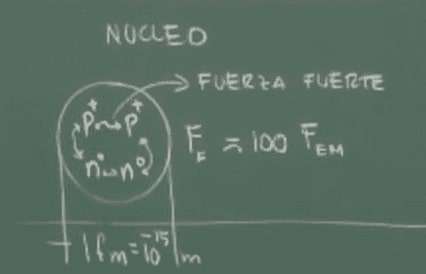 NUCLEO
FUERZA FUERTE
P⁺ P⁺
n⁰ n⁰
F_F ≈ 100 F_EM
1fm = 10⁻¹⁵ m